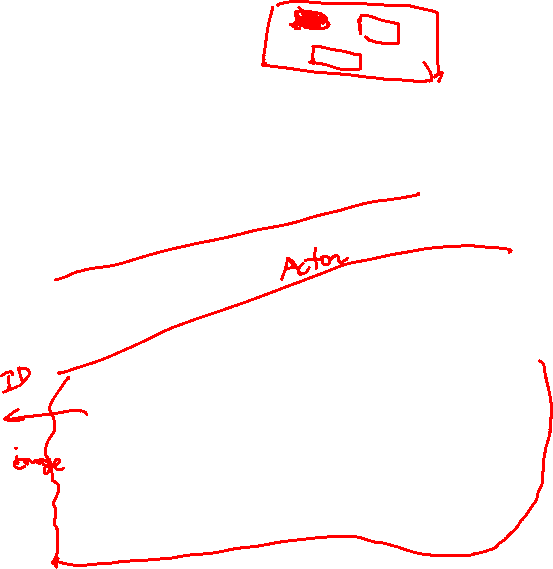 Actor
ID
image